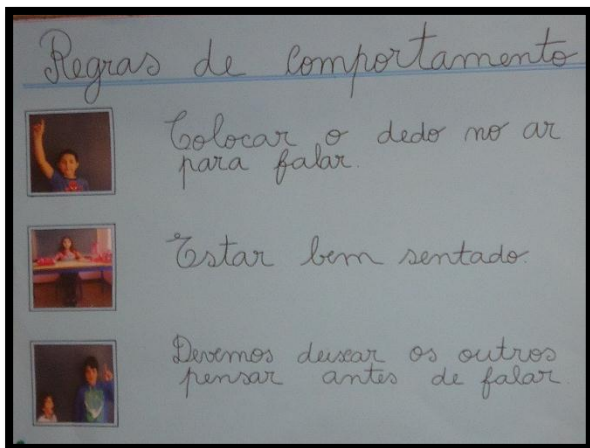 Regras de comportamento
Colocar o dedo no ar
para falar.
Estar bem sentado.
Devemos deixar os outros
pensar antes de falar.